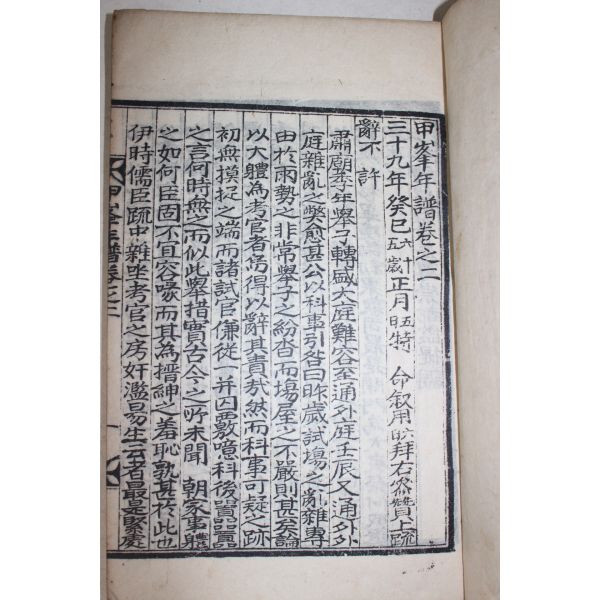 甲峯年譜卷之二
三十九年癸巳六十五歲正月五日特 命敘用 拜右參贊上疏
辭不許
肅廟季年擧子轉盛大庭難容至通外庭壬辰又通外外
庭雜亂之獘愈甚公以科事引咎曰昨歲試塲之亂雜專
由於雨勢之非常擧子之紛沓而塲屋之不嚴則甚矣論
以大體爲考官者焉得以辭其責㢤然而科事可疑之跡
初無摸捉之端而諸試官傔從一并囚覈噫科後囂囂
之言何時無之而似此擧措實古今之所未聞 朝家事體
之如何臣固不宜容喙而其爲搢紳之羞恥孰甚於此也
伊時儒臣疏中雜坐考官之房奸濫易生云者最是緊處
甲峯年譜卷之二